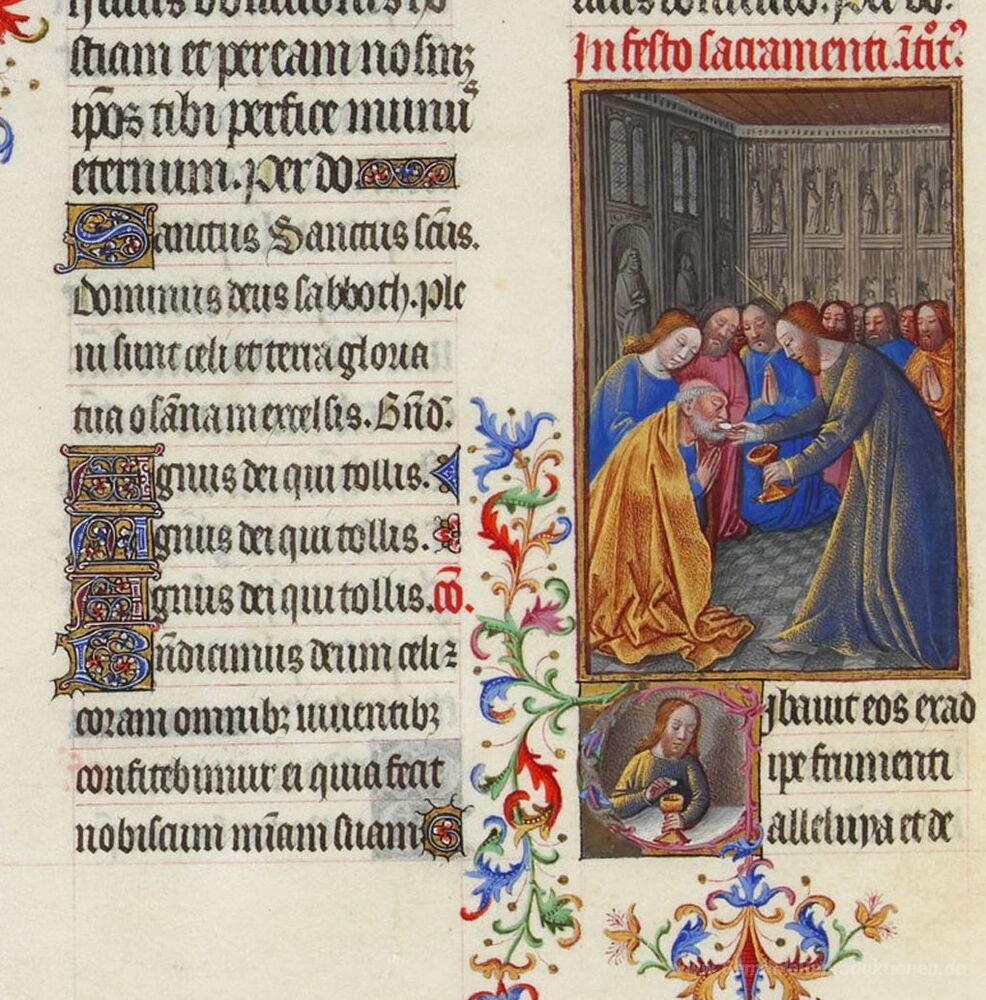 stiam et per eam nosmz
ipos tibi perfice munu
eternum. Per do
Sanctus Sanctus scus.
Dominus deus sabboth. Ple
ni sunt celi et terra gloria
tua osanam excelsis. Bnd.
Agnus dei qui tollis.
Agnus dei qui tollis.
Agnus dei qui tollis. cō.
Bndicimus deum celi z
coram omnibz uiuentibz
confitebimur ei quia fecit
nobiscum miam suam G
In festo sacramenti. itoit.
Cibauit eos ex ad
ipe frumenti
alleluya et de